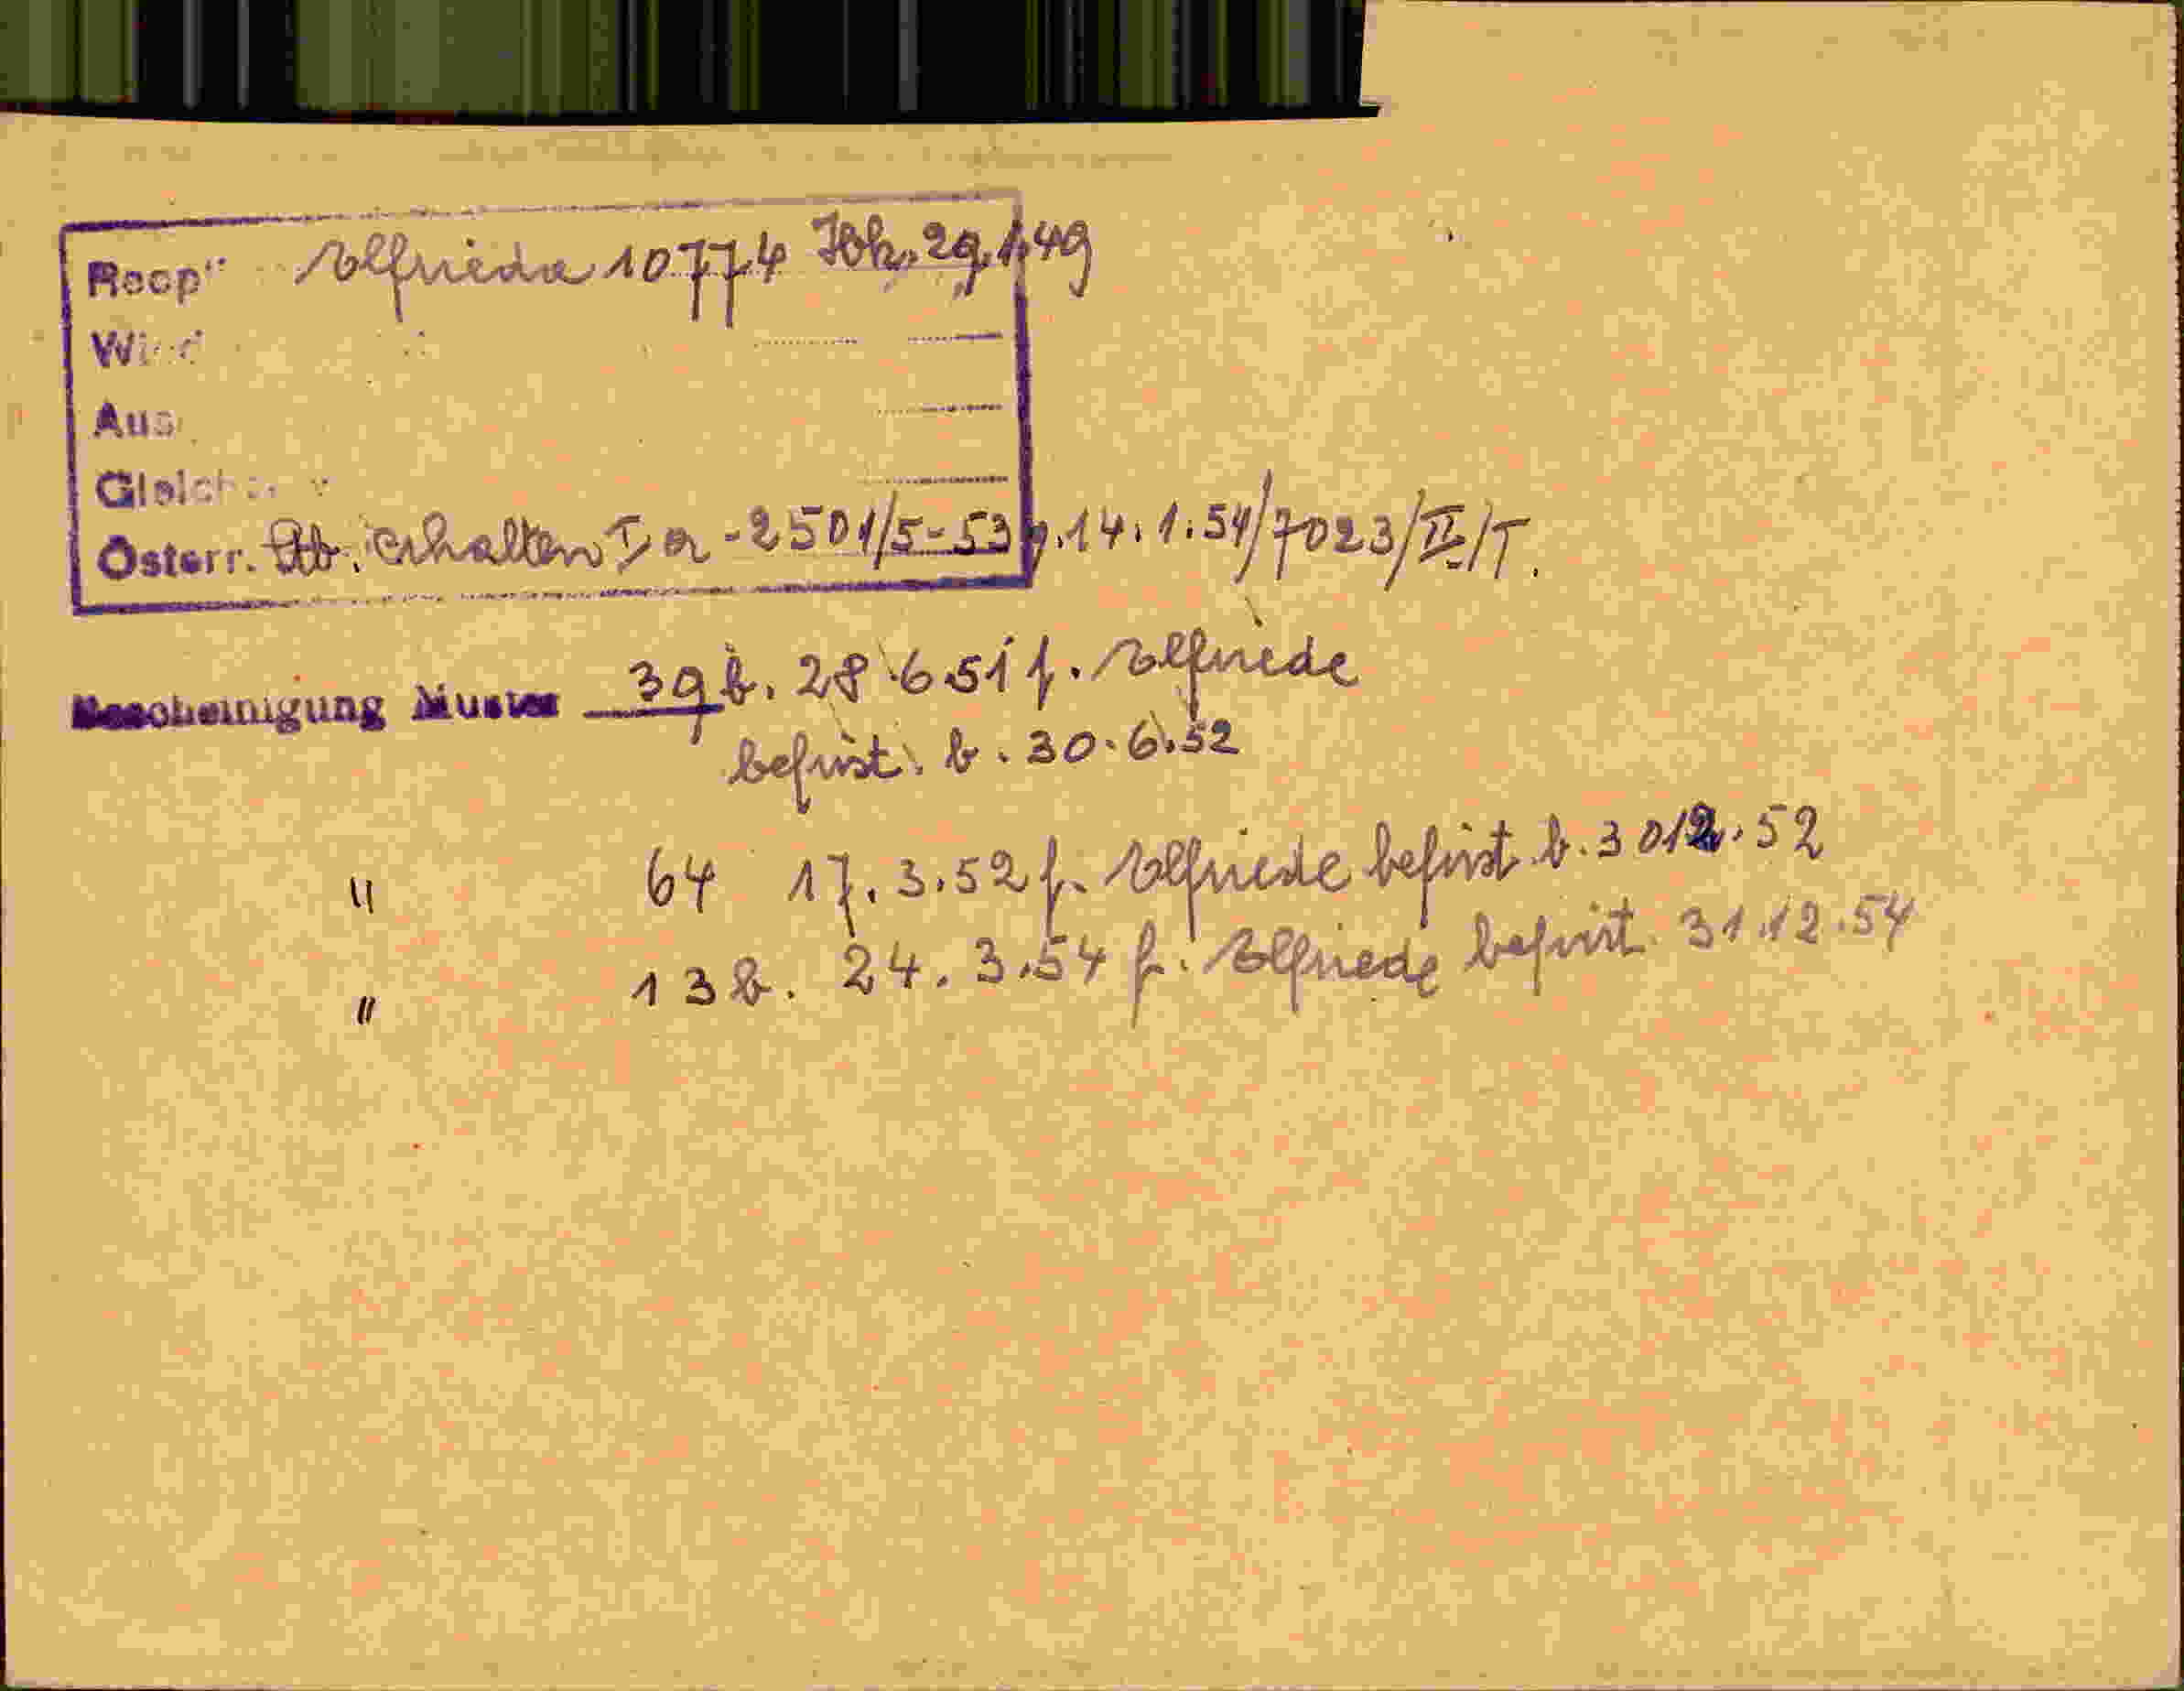 Elfriede 10774 Hk. 29.1.49
Aus
Österr. Stb. erhalten I a -2501/5-53 v. 14.1.54/7023/II/T.
Bescheinigung Muster 39 b. 28.6.51 f. Elfriede
befrist. b. 30.6.52
" 64 17.3.52 f. Elfriede befrist. b. 3012.52
" 13 b. 24.3.54 f. Elfriede befrist. 31.12.54